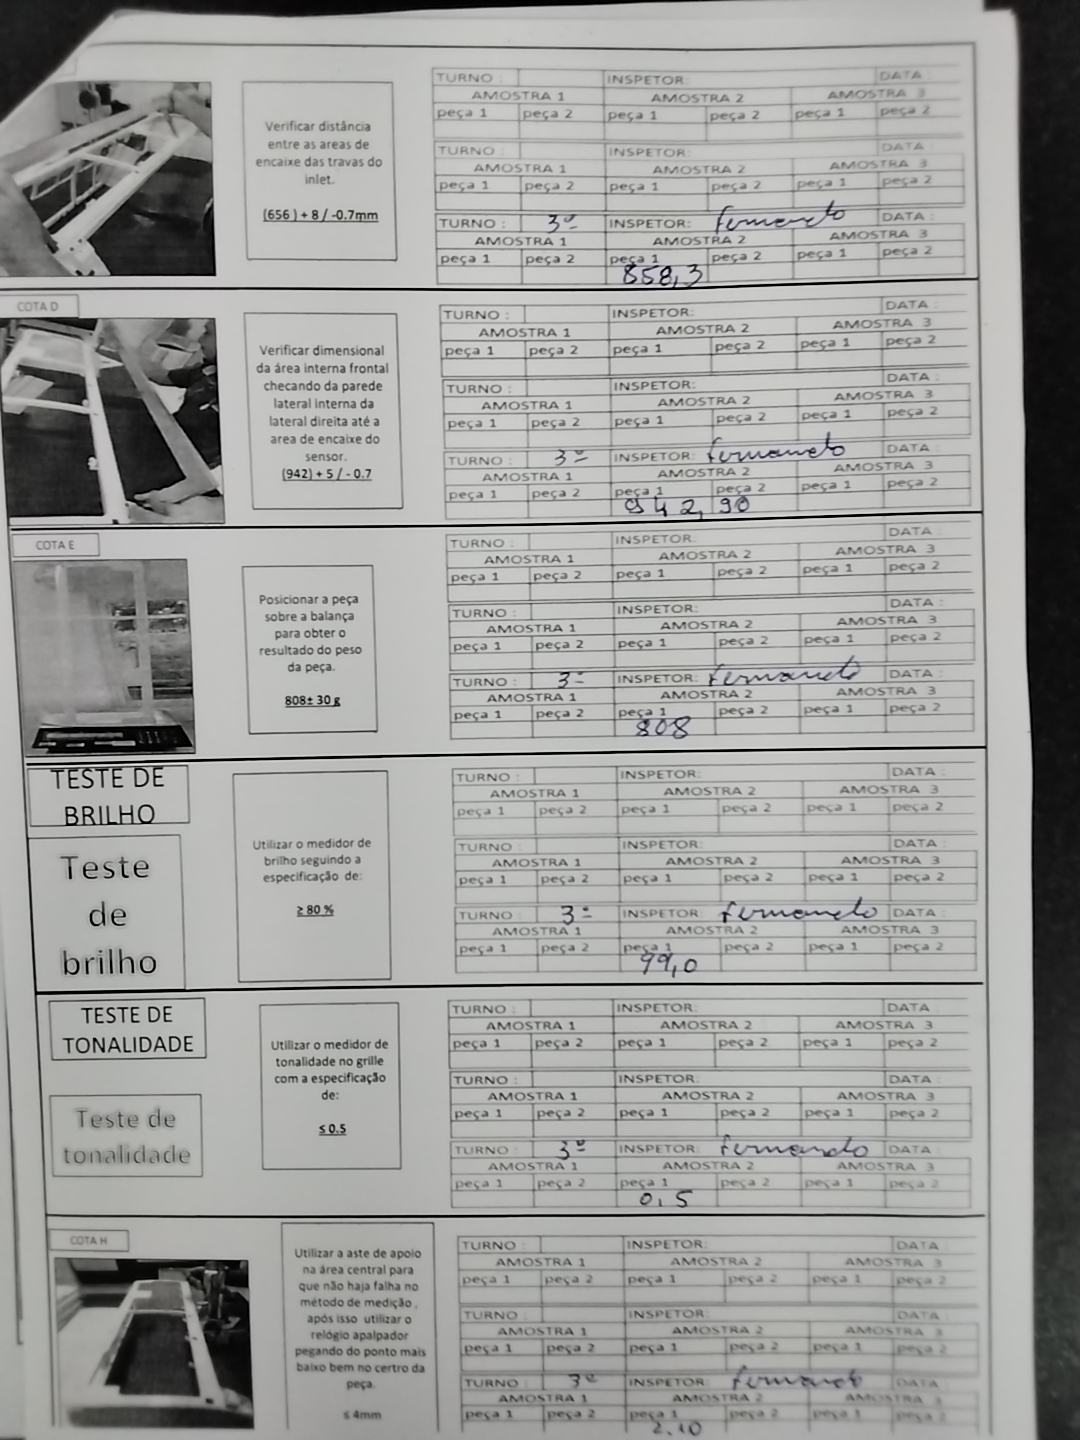 TURNO : INSPETOR: DATA :
AMOSTRA 1 AMOSTRA 2 AMOSTRA 3
peça 1 peça 2 peça 1 peça 2 peça 1 peça 2
Verificar distância
entre as areas de
encaixe das travas do
inlet.
(656 ) + 8 / -0.7mm
TURNO : INSPETOR: DATA :
AMOSTRA 1 AMOSTRA 2 AMOSTRA 3
peça 1 peça 2 peça 1 peça 2 peça 1 peça 2
TURNO : 3º INSPETOR: Fernando DATA :
AMOSTRA 1 AMOSTRA 2 AMOSTRA 3
peça 1 peça 2 peça 1 peça 2 peça 1 peça 2
858,3
COTA D
TURNO : INSPETOR: DATA :
AMOSTRA 1 AMOSTRA 2 AMOSTRA 3
peça 1 peça 2 peça 1 peça 2 peça 1 peça 2
Verificar dimensional
da área interna frontal
checando da parede
lateral interna da
lateral direita até a
area de encaixe do
sensor.
(942) + 5 / - 0.7
TURNO : INSPETOR: DATA :
AMOSTRA 1 AMOSTRA 2 AMOSTRA 3
peça 1 peça 2 peça 1 peça 2 peça 1 peça 2
TURNO : 3º INSPETOR: Fernando DATA :
AMOSTRA 1 AMOSTRA 2 AMOSTRA 3
peça 1 peça 2 peça 1 peça 2 peça 1 peça 2
942,90
COTA E
TURNO : INSPETOR: DATA :
AMOSTRA 1 AMOSTRA 2 AMOSTRA 3
peça 1 peça 2 peça 1 peça 2 peça 1 peça 2
Posicionar a peça
sobre a balança
para obter o
resultado do peso
da peça.
808± 30 g
TURNO : INSPETOR: DATA :
AMOSTRA 1 AMOSTRA 2 AMOSTRA 3
peça 1 peça 2 peça 1 peça 2 peça 1 peça 2
TURNO : 3º INSPETOR: Fernando DATA :
AMOSTRA 1 AMOSTRA 2 AMOSTRA 3
peça 1 peça 2 peça 1 peça 2 peça 1 peça 2
808
TESTE DE
BRILHO
Teste
de
brilho
Utilizar o medidor de
brilho seguindo a
especificação de:
≥ 80 %
TURNO : INSPETOR: DATA :
AMOSTRA 1 AMOSTRA 2 AMOSTRA 3
peça 1 peça 2 peça 1 peça 2 peça 1 peça 2
TURNO : INSPETOR: DATA :
AMOSTRA 1 AMOSTRA 2 AMOSTRA 3
peça 1 peça 2 peça 1 peça 2 peça 1 peça 2
TURNO : 3º INSPETOR: Fernando DATA :
AMOSTRA 1 AMOSTRA 2 AMOSTRA 3
peça 1 peça 2 peça 1 peça 2 peça 1 peça 2
99,0
TESTE DE
TONALIDADE
Teste de
tonalidade
Utilizar o medidor de
tonalidade no grille
com a especificação
de:
≤ 0.5
TURNO : INSPETOR: DATA :
AMOSTRA 1 AMOSTRA 2 AMOSTRA 3
peça 1 peça 2 peça 1 peça 2 peça 1 peça 2
TURNO : INSPETOR: DATA :
AMOSTRA 1 AMOSTRA 2 AMOSTRA 3
peça 1 peça 2 peça 1 peça 2 peça 1 peça 2
TURNO : 3º INSPETOR: Fernando DATA :
AMOSTRA 1 AMOSTRA 2 AMOSTRA 3
peça 1 peça 2 peça 1 peça 2 peça 1 peça 2
0,5
COTA H
Utilizar a aste de apoio
na área central para
que não haja falha no
método de medição ,
após isso utilizar o
relógio apalpador
pegando do ponto mais
baixo bem no certro da
peça.
≤ 4mm
TURNO : INSPETOR: DATA :
AMOSTRA 1 AMOSTRA 2 AMOSTRA 3
peça 1 peça 2 peça 1 peça 2 peça 1 peça 2
TURNO : INSPETOR: DATA :
AMOSTRA 1 AMOSTRA 2 AMOSTRA 3
peça 1 peça 2 peça 1 peça 2 peça 1 peça 2
TURNO : 3º INSPETOR: Fernando DATA :
AMOSTRA 1 AMOSTRA 2 AMOSTRA 3
peça 1 peça 2 peça 1 peça 2 peça 1 peça 2
2.10